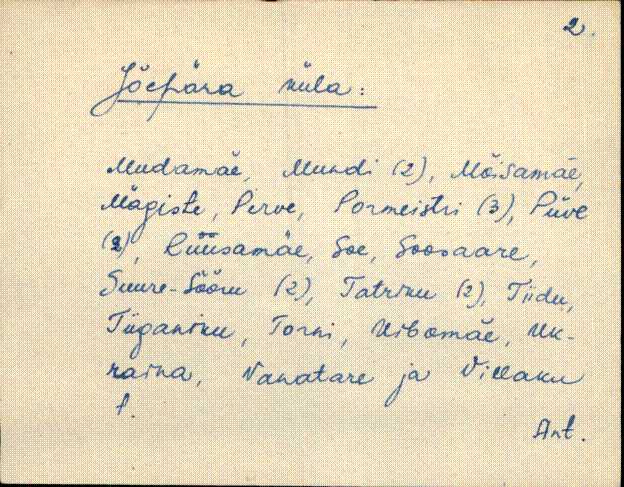 2.
Jõepära küla:
Mudamäe, Mundi (2), Mõisamäe,
Mägiste, Perve, Pormeistri (3), Püve
(2), Rüüsamäe, Soe, Soosaare,
Suure-Sööru (2), Tatriku (2), Tiidu,
Tiiganiku, Torni, Uibomäe, Uk-
raina, Vanatare ja Villaku
t.
Ant.